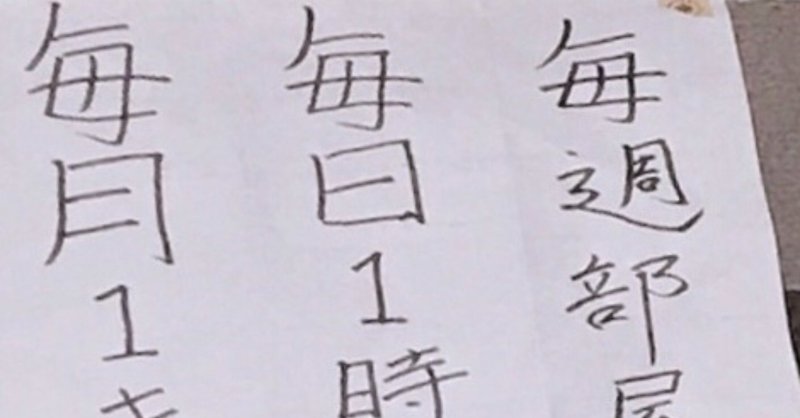 毎週部屋
毎日1時
毎月1